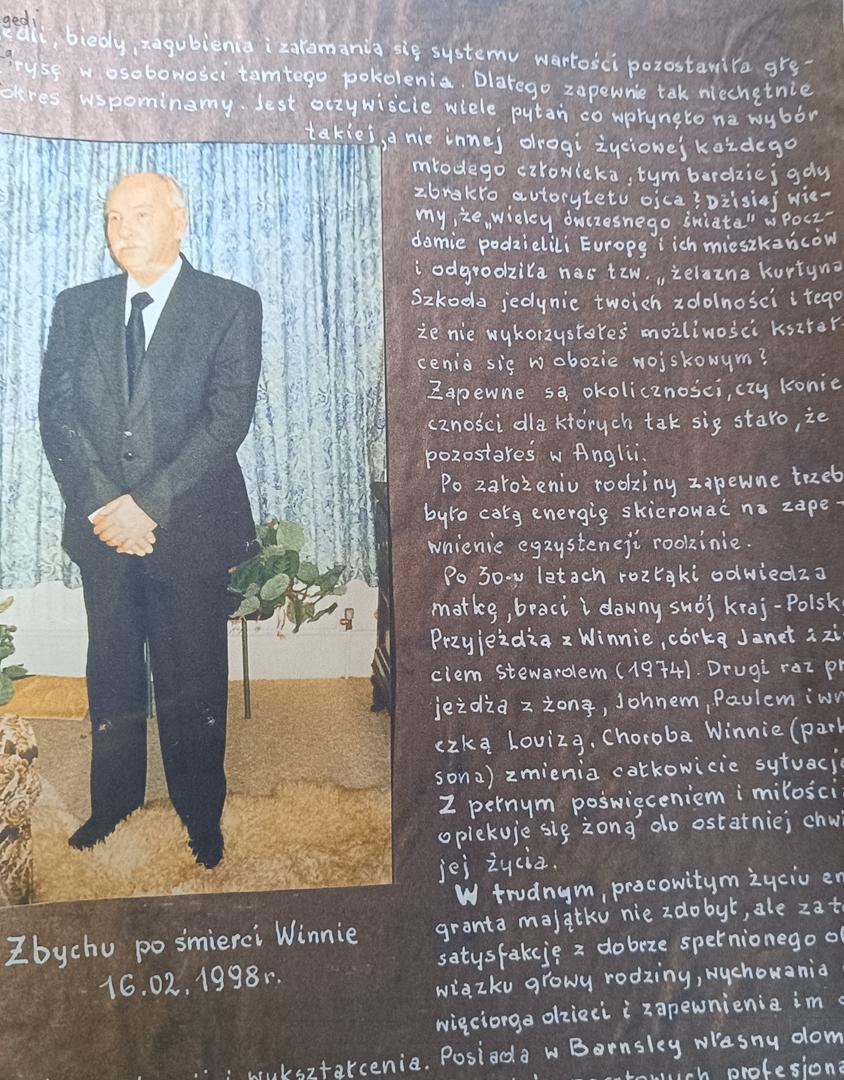 gedi
edii, biedy, zagubienia i załamania się systemu wartości pozostawiła głę-
rysę w osobowości tamtego pokolenia. Dlatego zapewnie tak niechętnie
okres wspominamy. Jest oczywiście wiele pytań co wpłynęło na wybór
takiej, a nie innej drogi życiowej każdego
młodego człowieka, tym bardziej gdy
zbrakło autorytetu ojca? Dzisiaj wie-
my, że „wielcy ówczesnego świata" w Pocz-
damie podzielili Europę i ich mieszkańców
i odgrodziła nas tzw. „żelazna kurtyna
Szkoda jedynie twoich zdolności i tego
że nie wykorzystałeś możliwości kształ-
cenia się w obozie wojskowym?
Zapewne są okoliczności, czy konie
czności dla których tak się stało, że
pozostałeś w Anglii.
Po założeniu rodziny zapewne trzeb
było całą energię skierować na zape-
wnienie egzystencji rodzinie.
Po 30-u latach rozłąki odwiedza
matkę, braci i dawny swój kraj - Polsk
Przyjeżdża z Winnie, córką Janet i zi
ciem Stewardem (1974). Drugi raz pr
jeżdża z żoną, Johnem, Paulem i wn
czką Lovizą. Choroba Winnie (park
sona) zmienia całkowicie sytuacj
Z pełnym poświęceniem i miłości
opiekuje się żoną do ostatniej chwi
jej życia.
W trudnym, pracowitym życiu em
granta majątku nie zdobył, ale za t
satysfakcję z dobrze spełnionego o
wiązku głowy rodziny, wychowania
więciorga dzieci i zapewnienia im
i wykształcenia. Posiada w Barnsley własny dom
profesjona
Zbychu po śmierci Winnie
16.02.1998r.